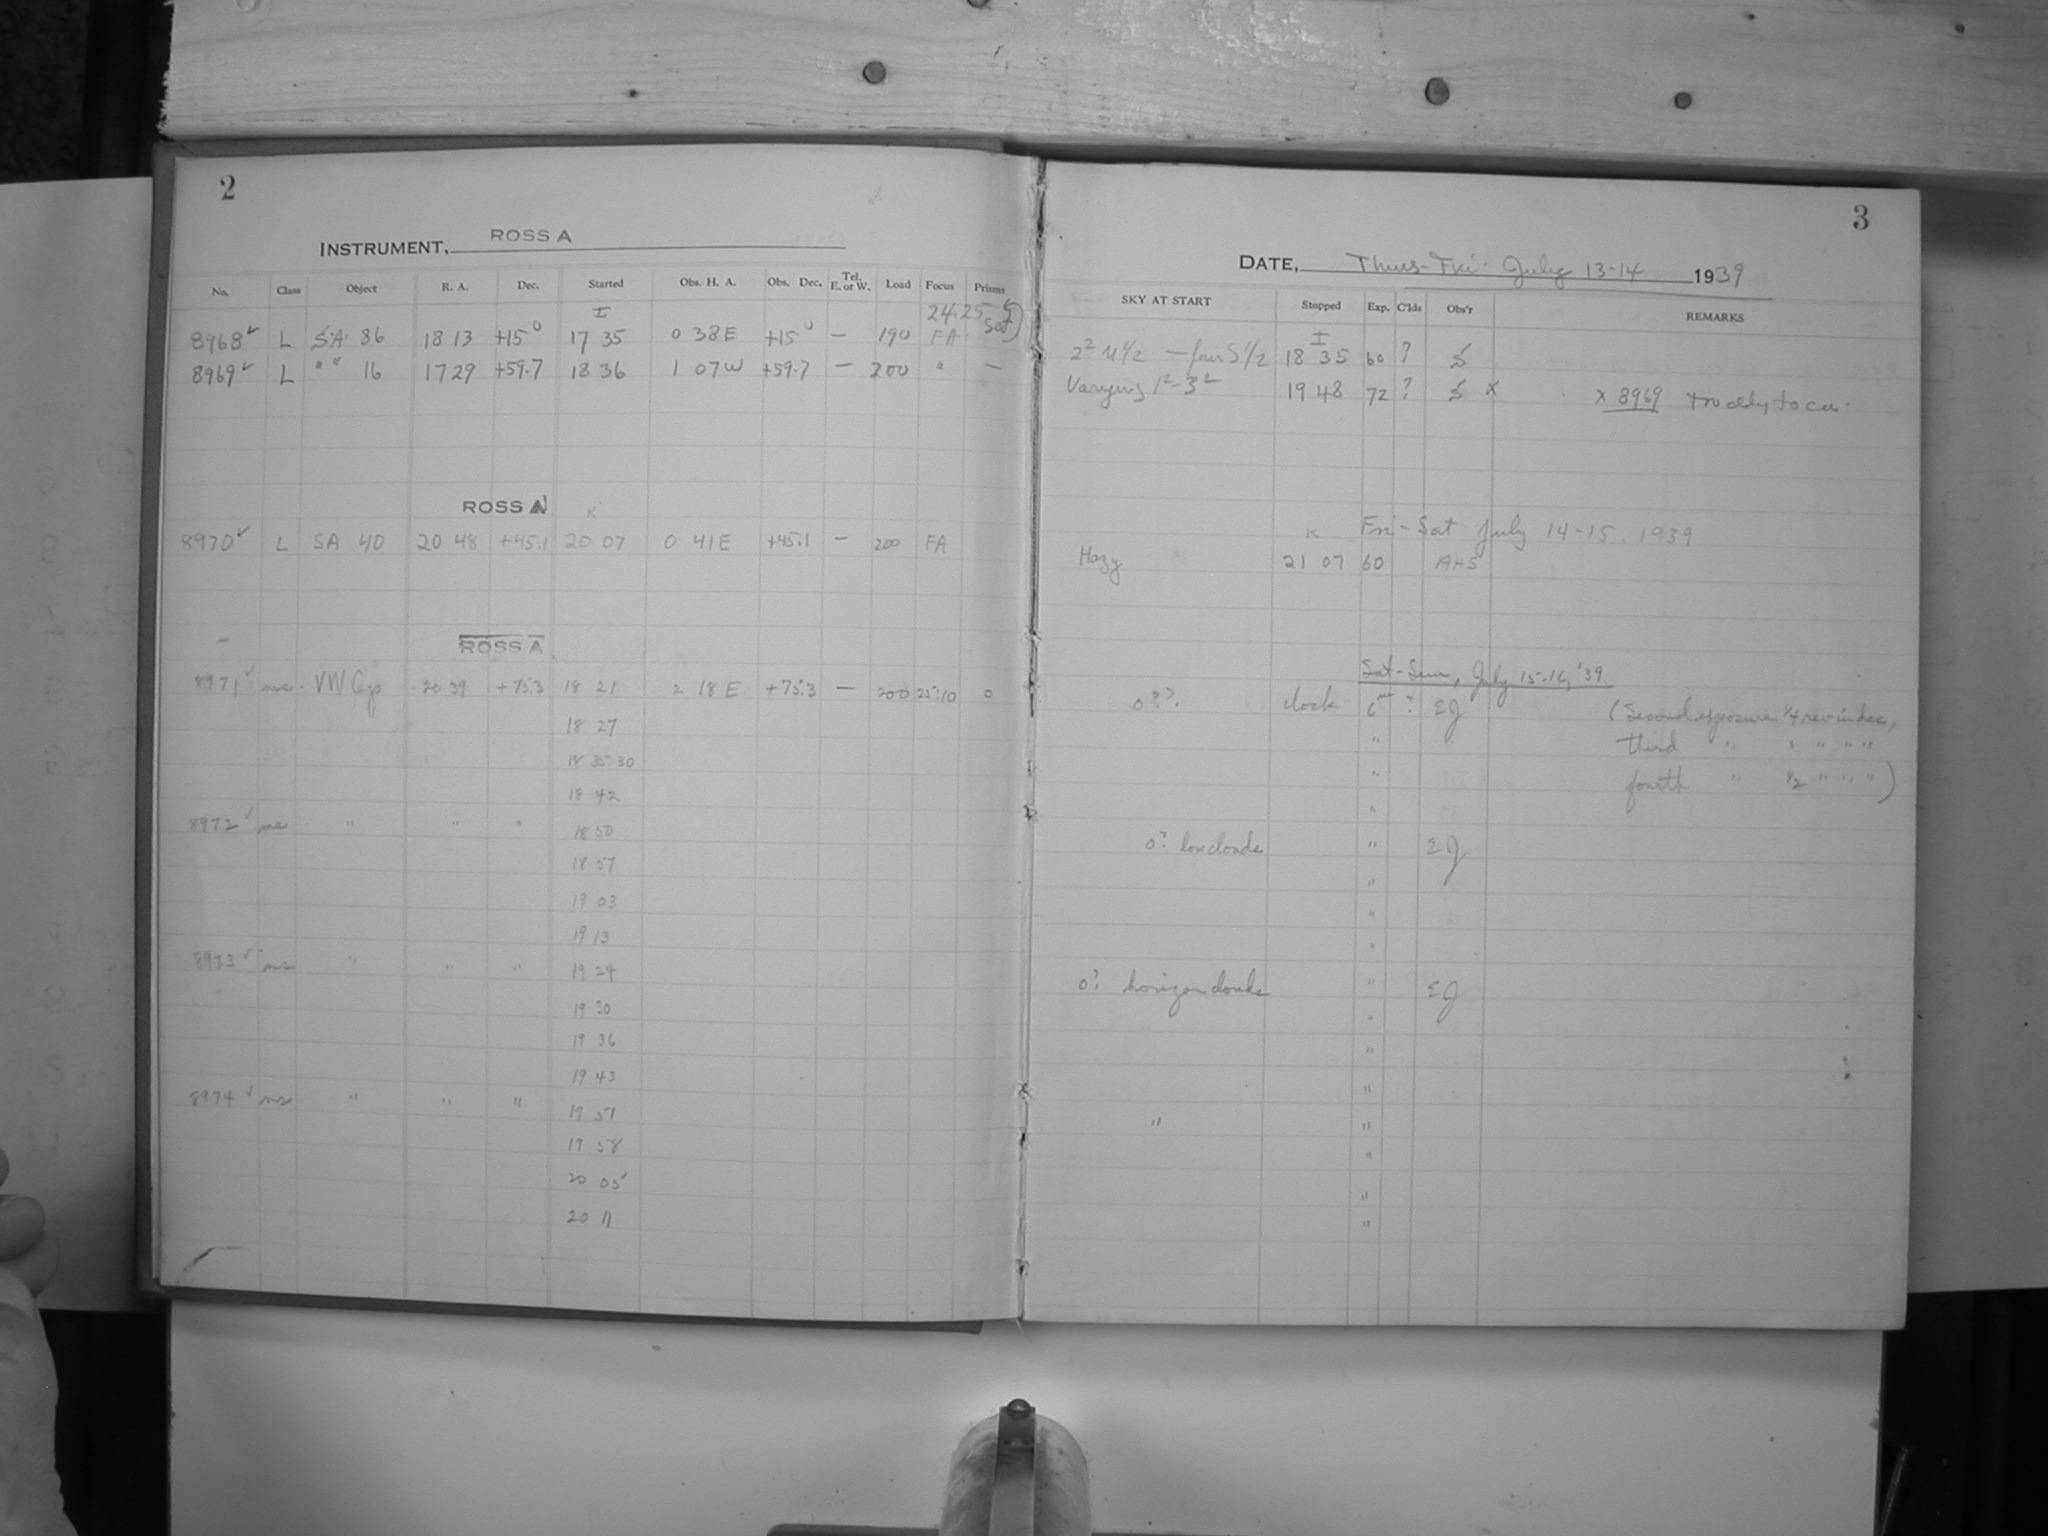 2
INSTRUMENT, ROSS A
No. Class Object R. A. Dec. Started Obs. H. A. Obs. Dec. Tel. E. or W. Load Focus Prisms
I 24.25
8968 ✓ L S.A. 86 18 13 +15° 17 35 0 38 E +15° — 190 FA
8969 ✓ L " " 16 17 29 +59.7 18 36 1 07 W +59.7 — 200 " —
ROSS A
K
8970 ✓ L SA 40 20 48 +45.1 20 07 0 41 E +45.1 — 200 FA
ROSS A
8971 ✓ ms VW Cep 20 39 +75.3 18 21 2 18 E +75.3 — 200 25.10 0
18 27
18 35 30
18 42
8972 ✓ ms " " " 18 50
18 57
19 03
19 13
8973 ✓ ms " " " 19 24
19 30
19 36
19 43
8974 ✓ ms " " " 19 51
19 58
20 05
20 11
3
DATE, Thurs-Fri. July 13-14 1939
SKY AT START Stopped Exp. C'lds Obs'r REMARKS
I
18 35 60 ?
Varying 1²-3² 19 48 72 ? x x 8969
K Fri-Sat July 14-15, 1939
Hazy 21 07 60 AHS
Sat-Sun, July 15-16, '39
0?? clock 6 ? EJ (Second exposure 1/4 rev in dec,
" third " " " "
" fourth " 1/2 " " " )
"
0? low clouds " EJ
"
"
"
0? horizon clouds " EJ
"
"
"
" "
"
"
"